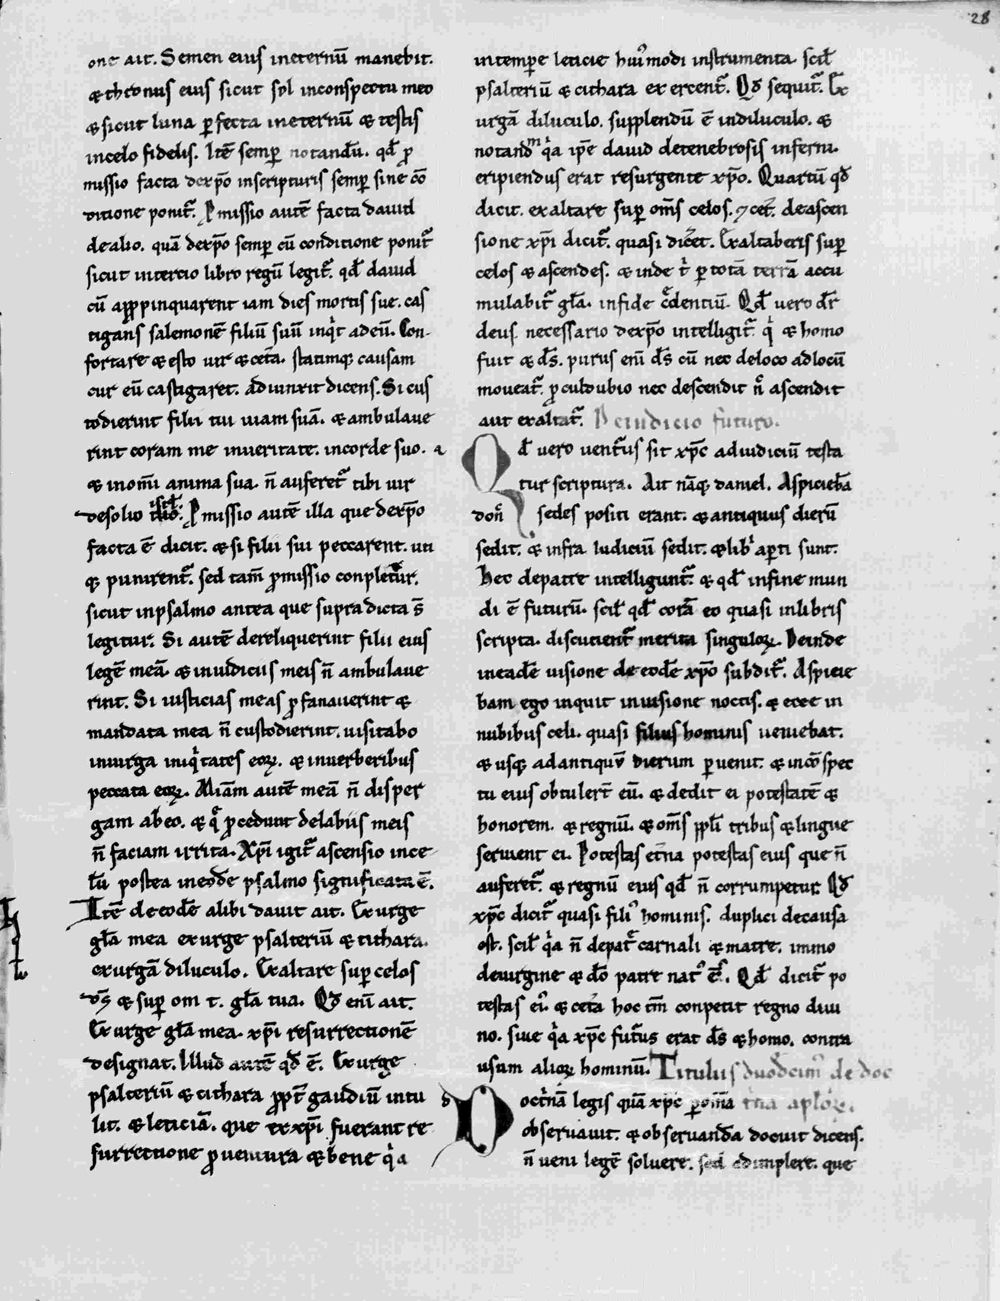 28
one ait. Semen eius ineternū manebit.
& thronus eius sicut sol inconspectu meo
& sicut luna ꝑfecta ineternū & testis
incelo fidelis. Itē semꝑ notandū. qđ ꝓ
missio facta dexp̄o inscripturis semꝑ sine cō
ditione ponit᷑. Ꝓmissio autē facta dauid
dealio. quā dexp̄o semꝑ cū conditione ponit᷑
sicut intercio libro regū legit᷑. qđ dauid
cū aꝓpinquarent iam dies mortis sue. cas
tigans salemonē filiū suū inqͥt adeū. Con-
fortare & esto uir & ceta᷑. statimq; causam
cur eū castigaret. adiunxit dicens. Si cus
todierint filii tui uiam suā. & ambulaue
rint coram me inueritate. incorde suo.
& inom̄i anima sua. n̄ auferet᷑ tibi uir
desolio isrł. Ꝓmissio autē illa que dexp̄o
facta ē dicit. & si filii sui peccarent. uti
q; punirent᷑. sed tam̄ ꝓmissio conpletur.
sicut inpsalmo antea que supra dicta s̄
legitur. Si autē dereliquerint filii eius
legē meā. & iniudiciis meis n̄ ambulaue
rint. Si iusticias meas ꝓfanauerint &
mandata mea n̄ custodierint. uisitabo
inuirga iniqͥtates eoꝝ. & inuerberibus
peccata eoꝝ. Miam autē meā n̄ disper
gam ab eo. & q̄ ꝓcedunt delabiis meis
n̄ faciam irrita. Xp̄i igit᷑ ascensio ince
lū postea ineodē psalmo significata ē.
Itē de eodē alibi dauit ait. Exurge
gła mea exurge psalteriū & cithara.
exurgā diluculo. Exaltare suꝑ celos
ds̄ & suꝑ om̄ t. gła tua. Qđ enī ait.
Exurge gła mea. xp̄i resurrectionē
designat. Illud autē qđ ē. Exurge
psalteriū & cithara ꝓpt̄ gaudiū intu
lit. & leticiā. que exxp̄i fuerant re
surrectione ꝓuentura & bene qͥa
intempe leticie huiͫodi instrumenta. scił
psalteriū & cithara exercent᷑. Qđ sequit᷑. Ex
urgā diluculo. supplendū ē indiluculo. &
notandͫ qͥa ip̄e dauid detenebrosis inferni.
eripiendus erat resurgente xp̄o. Quartū qđ
dicit. exaltare suꝑ om̄s celos. ⁊ cet᷑. deascen
sione xp̄i dicit᷑. quasi dic̄et. Exaltaberis suꝑ
celos & ascendes. & inde t̄ ꝑ totā terrā accu
mulabit᷑ gła. infide c̄dentiū. Qđ uero dr̄
deus. necessario dexp̄o intelligit᷑. qͥ & homo
fuit & ds̄. purus enī ds̄ cū nec deloco adlocū
moueat᷑. ꝓculdubio nec descendit n̄ ascendit
aut exaltat᷑. De iudicio futuro.
Qđ uero uent᷑us sit xp̄c adiudiciū testa
tur scriptura. Ait nāq; daniel. Aspiciebā
don̄ sedes positi erant. & antiquus dierū
sedit. & infra Iudiciū sedit. & libͥ aꝑti sunt.
Hec depatre intelligunt᷑. & qđ infine mun
di ē futurū. scił qđ corā eo quasi inlibris
scripta. discutient᷑ merita singuloꝝ. Deinde
ineadē uisione de eodē xp̄o subdit᷑. Aspicie
bam ego inquit inuisione noctis. & ecce in
nubibus celi. quasi filius hominis ueniebat.
& usq; adantiquū dierum ꝑuenit. & incōspec
tu eius obtuler̄t eū. & dedit ei potestatē &
honorem. & regnū. & om̄s pp̄li tribus & lingue
seruient ei. Potestas et̄na potestas eius que n̄
auferet᷑. & regnū eius qđ n̄ corrumpetur. Qđ
xp̄c dicit᷑ quasi filiꝰ hominis. duplici decausa
est. scił qͥa n̄ depat᷑ carnali & matre. immo
deuirgine & dō patre natꝰ ē. Qđ dicit᷑ po
testas eiꝰ. & cet᷑a hoc tm̄ conpetit regno diui
no. siue qͥa xp̄c fut᷑us erat ds̄ & homo. contra
usum alioꝝ hominū. Titulus duodecimꝰ de doc
Doct᷑nā legis quā xp̄c ꝑ om̄ia t᷑na aploꝝ.
obseruauit. & obseruanda docuit dicens.
n̄ ueni legē soluere. sed adimplere. que